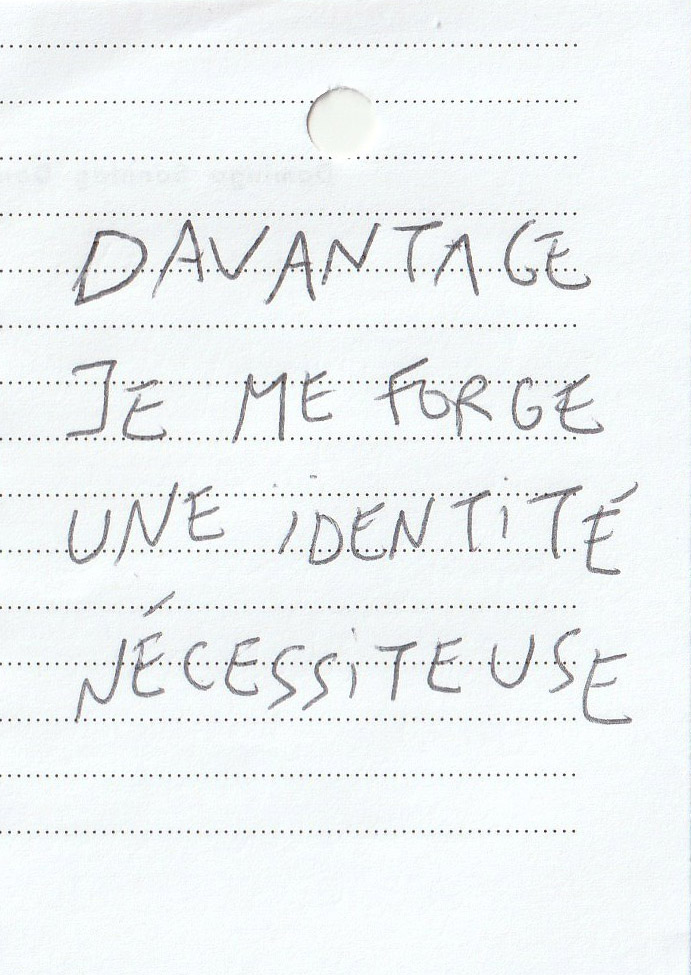 DAVANTAGE
JE ME FORGE
UNE iDENTiTÉ
NÉCESSiTEUSE